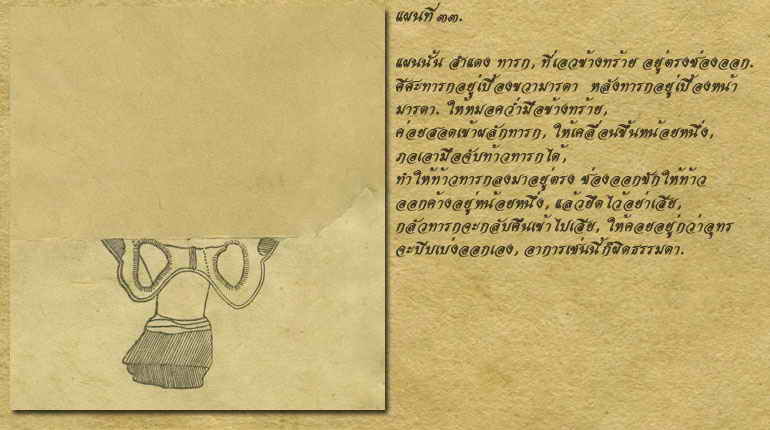 แผนที่ ๓๓.
แผนนั้น สำแดง ทารก, ที่เอวข้างทร้าย อยู่ตรงช่องออก.
ศีศะทารกอยู่เบื้องขวามารดา หลังทารกอยู่เบื้องหน้า
มารดา. ให้หมอคว่ำมือข้างทร้าย,
ค่อยสอดเข้าผลักทารก, ให้เคลื่อนขึ้นหน้อยหนึ่ง,
ภอเอามือจับท้าวทารกได้,
ทำให้ท้าวทารกลงมาอยู่ตรง ช่องออกชักให้ท้าว
ออกค้างอยู่หน้อยหนึ่ง, แล้วยึดไว้อย่าเสีย,
กลัวทารกจะกลับคืนเข้าไปเสีย, ให้คอยอยู่กว่าอุทร
จะบีบเบ่งออกเอง, อาการเช่นนี้ก็ผิดธรรมดา.